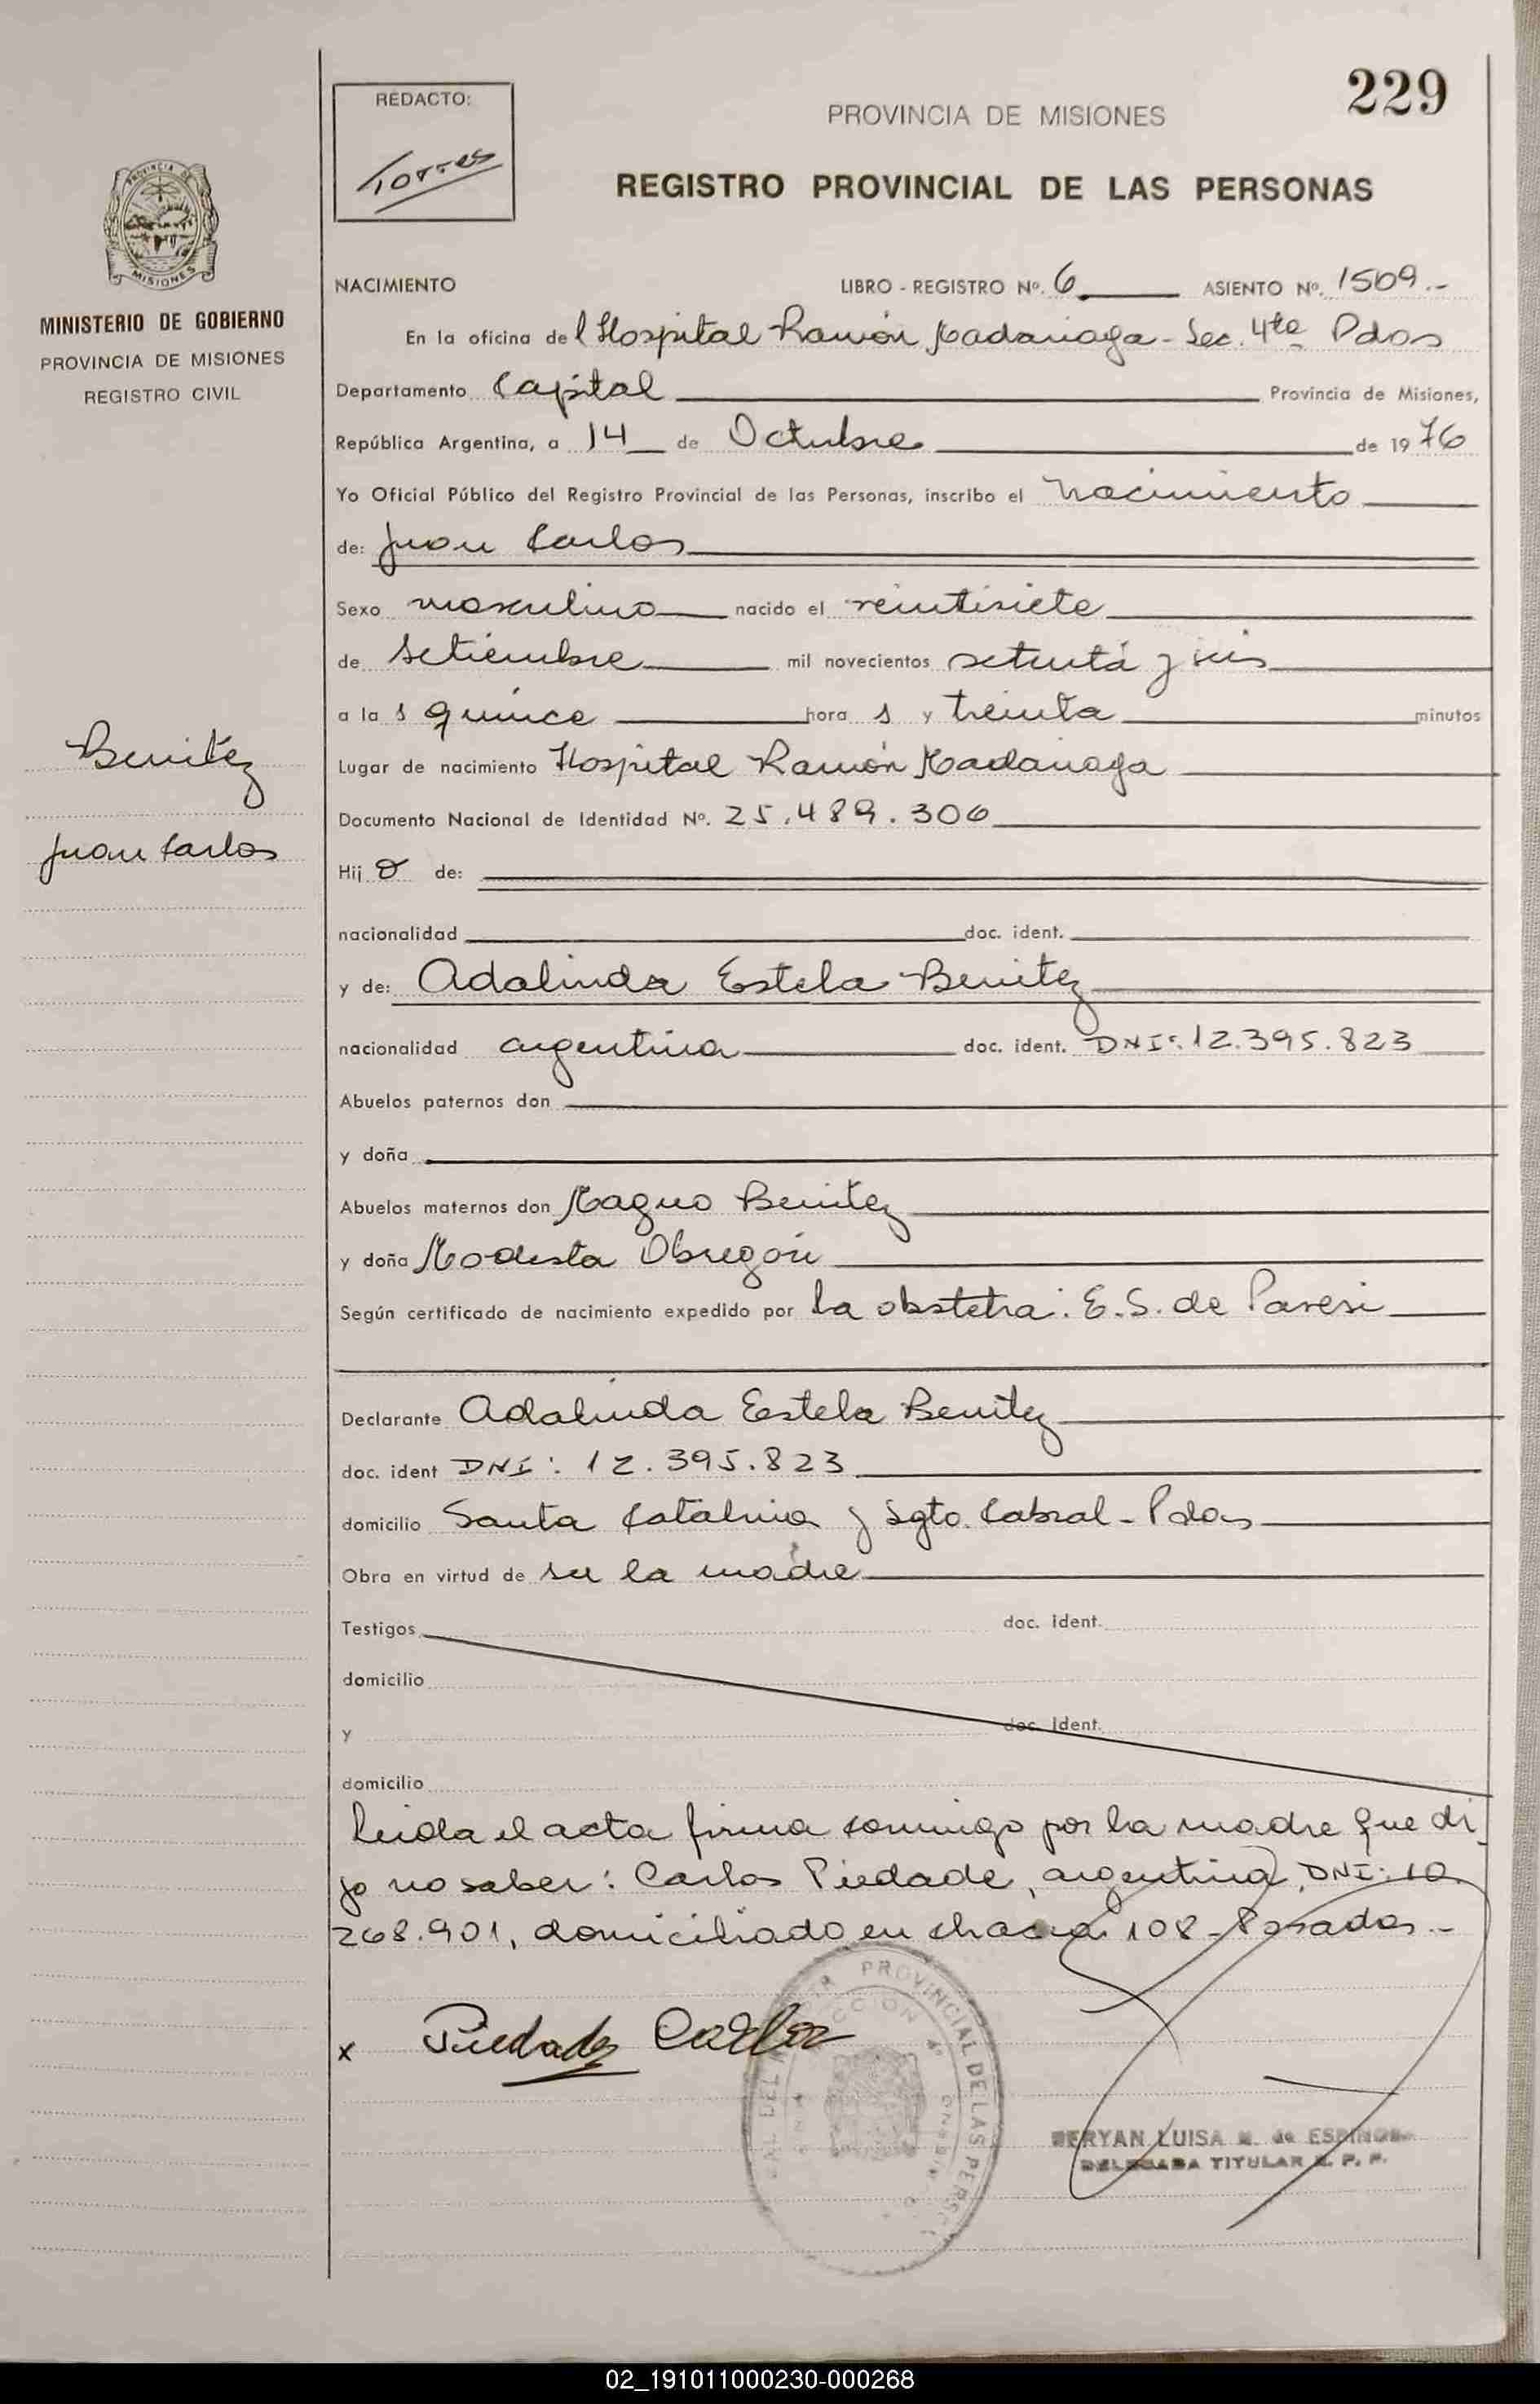 229
REDACTO:
Torres
PROVINCIA DE MISIONES
REGISTRO PROVINCIAL DE LAS PERSONAS
PROVINCIA DE
MISIONES
MINISTERIO DE GOBIERNO
PROVINCIA DE MISIONES
REGISTRO CIVIL
NACIMIENTO LIBRO - REGISTRO Nº. 6 ASIENTO Nº. 1509.-
En la oficina del Hospital Ramón Madariaga - Sec. 4ta Pdas
Departamento Capital Provincia de Misiones,
República Argentina, a 14 de Octubre de 1976
Yo Oficial Público del Registro Provincial de las Personas, inscribo el nacimiento
de: Juan Carlos
Sexo masculino nacido el veintisiete
de setiembre mil novecientos setenta y seis
a las quince horas y treinta minutos
Benitez
Juan Carlos
Lugar de nacimiento Hospital Ramón Madariaga
Documento Nacional de Identidad Nº. 25.489.306
Hijo de:
nacionalidad doc. ident.
y de: Adalinda Estela Benitez
nacionalidad argentina doc. ident. DNI: 12.395.823
Abuelos paternos don
y doña
Abuelos maternos don Magno Benitez
y doña Modesta Obregón
Según certificado de nacimiento expedido por la obstetra: E.S. de Paresi
Declarante Adalinda Estela Benitez
doc. ident DNI: 12.395.823
domicilio Santa Catalina y Sgto. Cabral - Pdas
Obra en virtud de ser la madre
Testigos doc. ident.
domicilio
y doc. ident.
domicilio
Leida el acta firma conmigo por la madre que di
jo no saber: Carlos Piedade, argentina, DNI: 10.
268.901, domiciliado en chacra 108 - Posadas.-
x Piedade Carlos
PROVINCIAL DE LAS PERSO
BERYAN LUISA M. de ESPINOSA
DELEGADA TITULAR R. P. P.
02_191011000230-000268